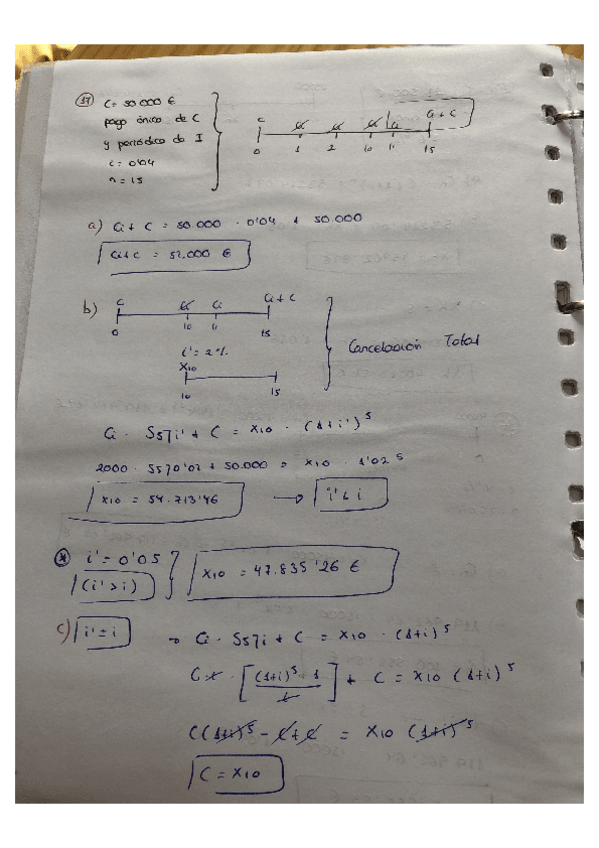 37 C = 50 000 €
pago único de C
y periódico de I
i = 0'04
n = 15
C Ci Ci Ci Ci Ci + C
0 1 2 10 11 15
a) Ci + C = 50.000 · 0'04 + 50.000
Ci + C = 52.000 €
b) C Ci Ci Ci + C
0 10 11 15
i' = 2%
X10
10 15
Cancelación Total
Ci · S5¬i' + C = X10 · (1+i')^5
2000 · S5¬0'02 + 50.000 = X10 · 1'02^5
X10 = 54.713'46 → i' < i
* i' = 0'05
(i' > i)
X10 = 47.835'26 €
c) i' = i → Ci · S5¬i + C = X10 · (1+i)^5
C i · [(1+i)^5 - 1 / i] + C = X10 (1+i)^5
C(1+i)^5 - C + C = X10 (1+i)^5
C = X10